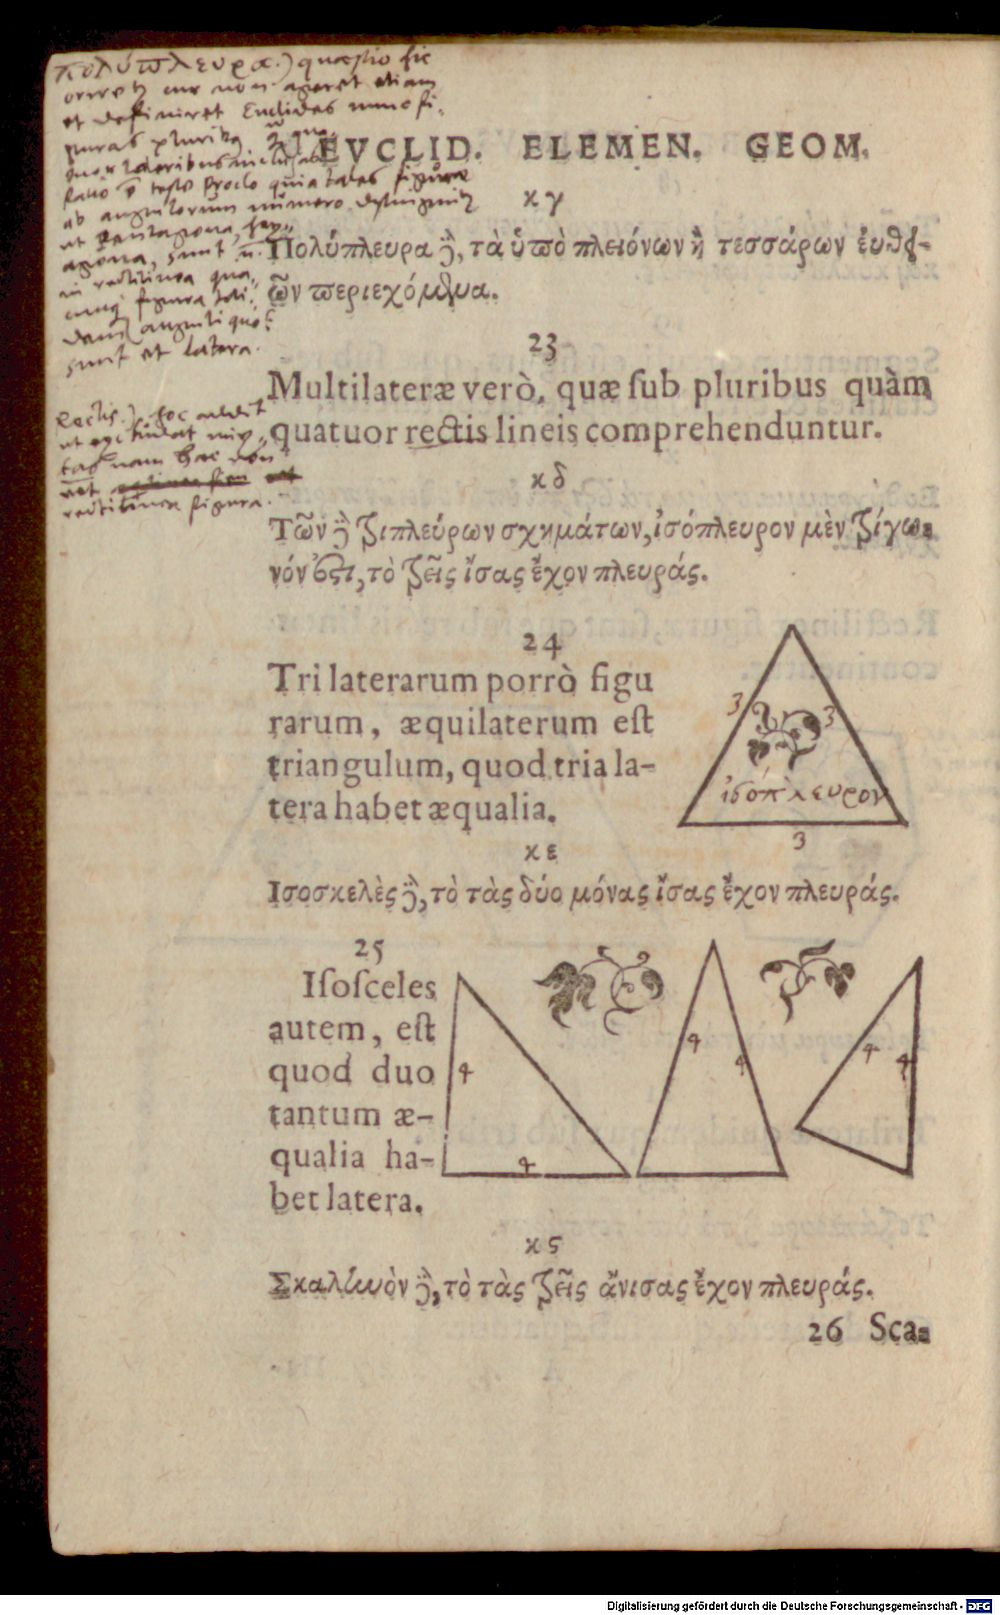 πολύπλευρα.) quæstio hic
oriretur cur non ageret etiam
et definiret Euclides
figuras pluribus quam qua-
tuor lateribus
ratio est teste Proclo quia tales figuræ
ab angulorum numero distinguuntur
ut pentagona, hexa-
gona, sunt n.
in rectilinea qua-
cunq figura toti-
dem anguli quot
sunt et latera.
EVCLID. ELEMEN. GEOM.
κγ
Πολύπλευρα δὲ, τὰ ὑπὸ πλειόνων ἢ τεσσάρων ἐυθει-
ῶν περιεχόμενα.
23
Multilateræ verò, quæ ſub pluribus quàm
quatuor rectis lineis comprehenduntur.
Rectis.) hoc addit
ut excludat mix-
tas nam hæc non
rectilinea figura.
κδ
Τῶν δὲ τριπλεύρων σχημάτων, ἰσόπλευρον μὲν τρίγω-
νόν ἐστι, τὸ τρεῖς ἴσας ἔχον πλευράς.
24
Tri laterarum porrò figu
rarum, æquilaterum eſt
triangulum, quod tria la-
tera habet æqualia.
3 3
ἰσόπλευρον
3
κε
Ισοσκελὲς δὲ, τὸ τὰς δύο μόνας ἴσας ἔχον πλευράς.
25
Iſoſceles
autem, eſt
quod duo
tantum æ-
qualia ha-
bet latera.
4 4
4 4
4 4
κς
Σκαληνὸν δὲ, τὸ τὰς τρεῖς ἄνισας ἔχον πλευράς.
26 Sca-
Digitalisierung gefördert durch die Deutsche Forschungsgemeinschaft - DFG